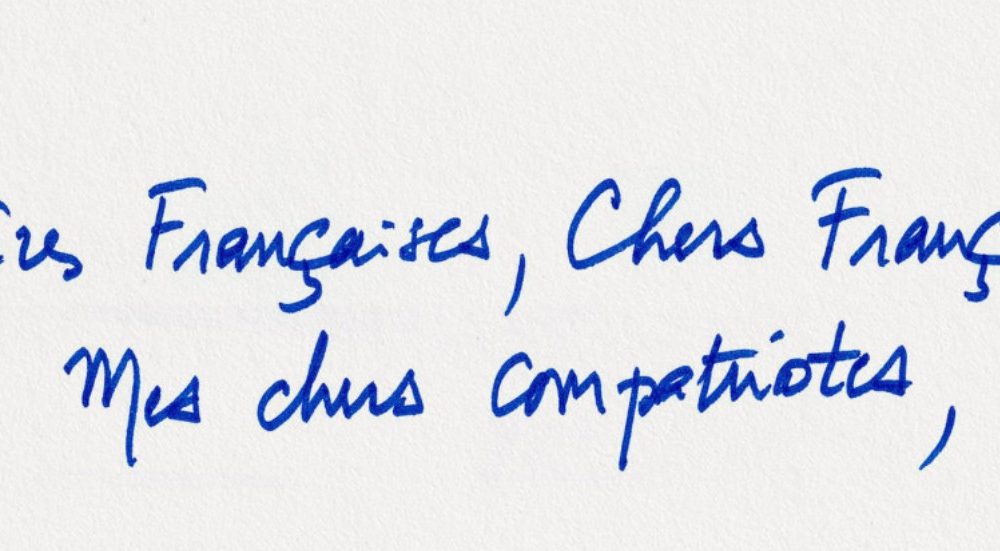 res Françaises, Chers Franç
Mes chers compatriotes,